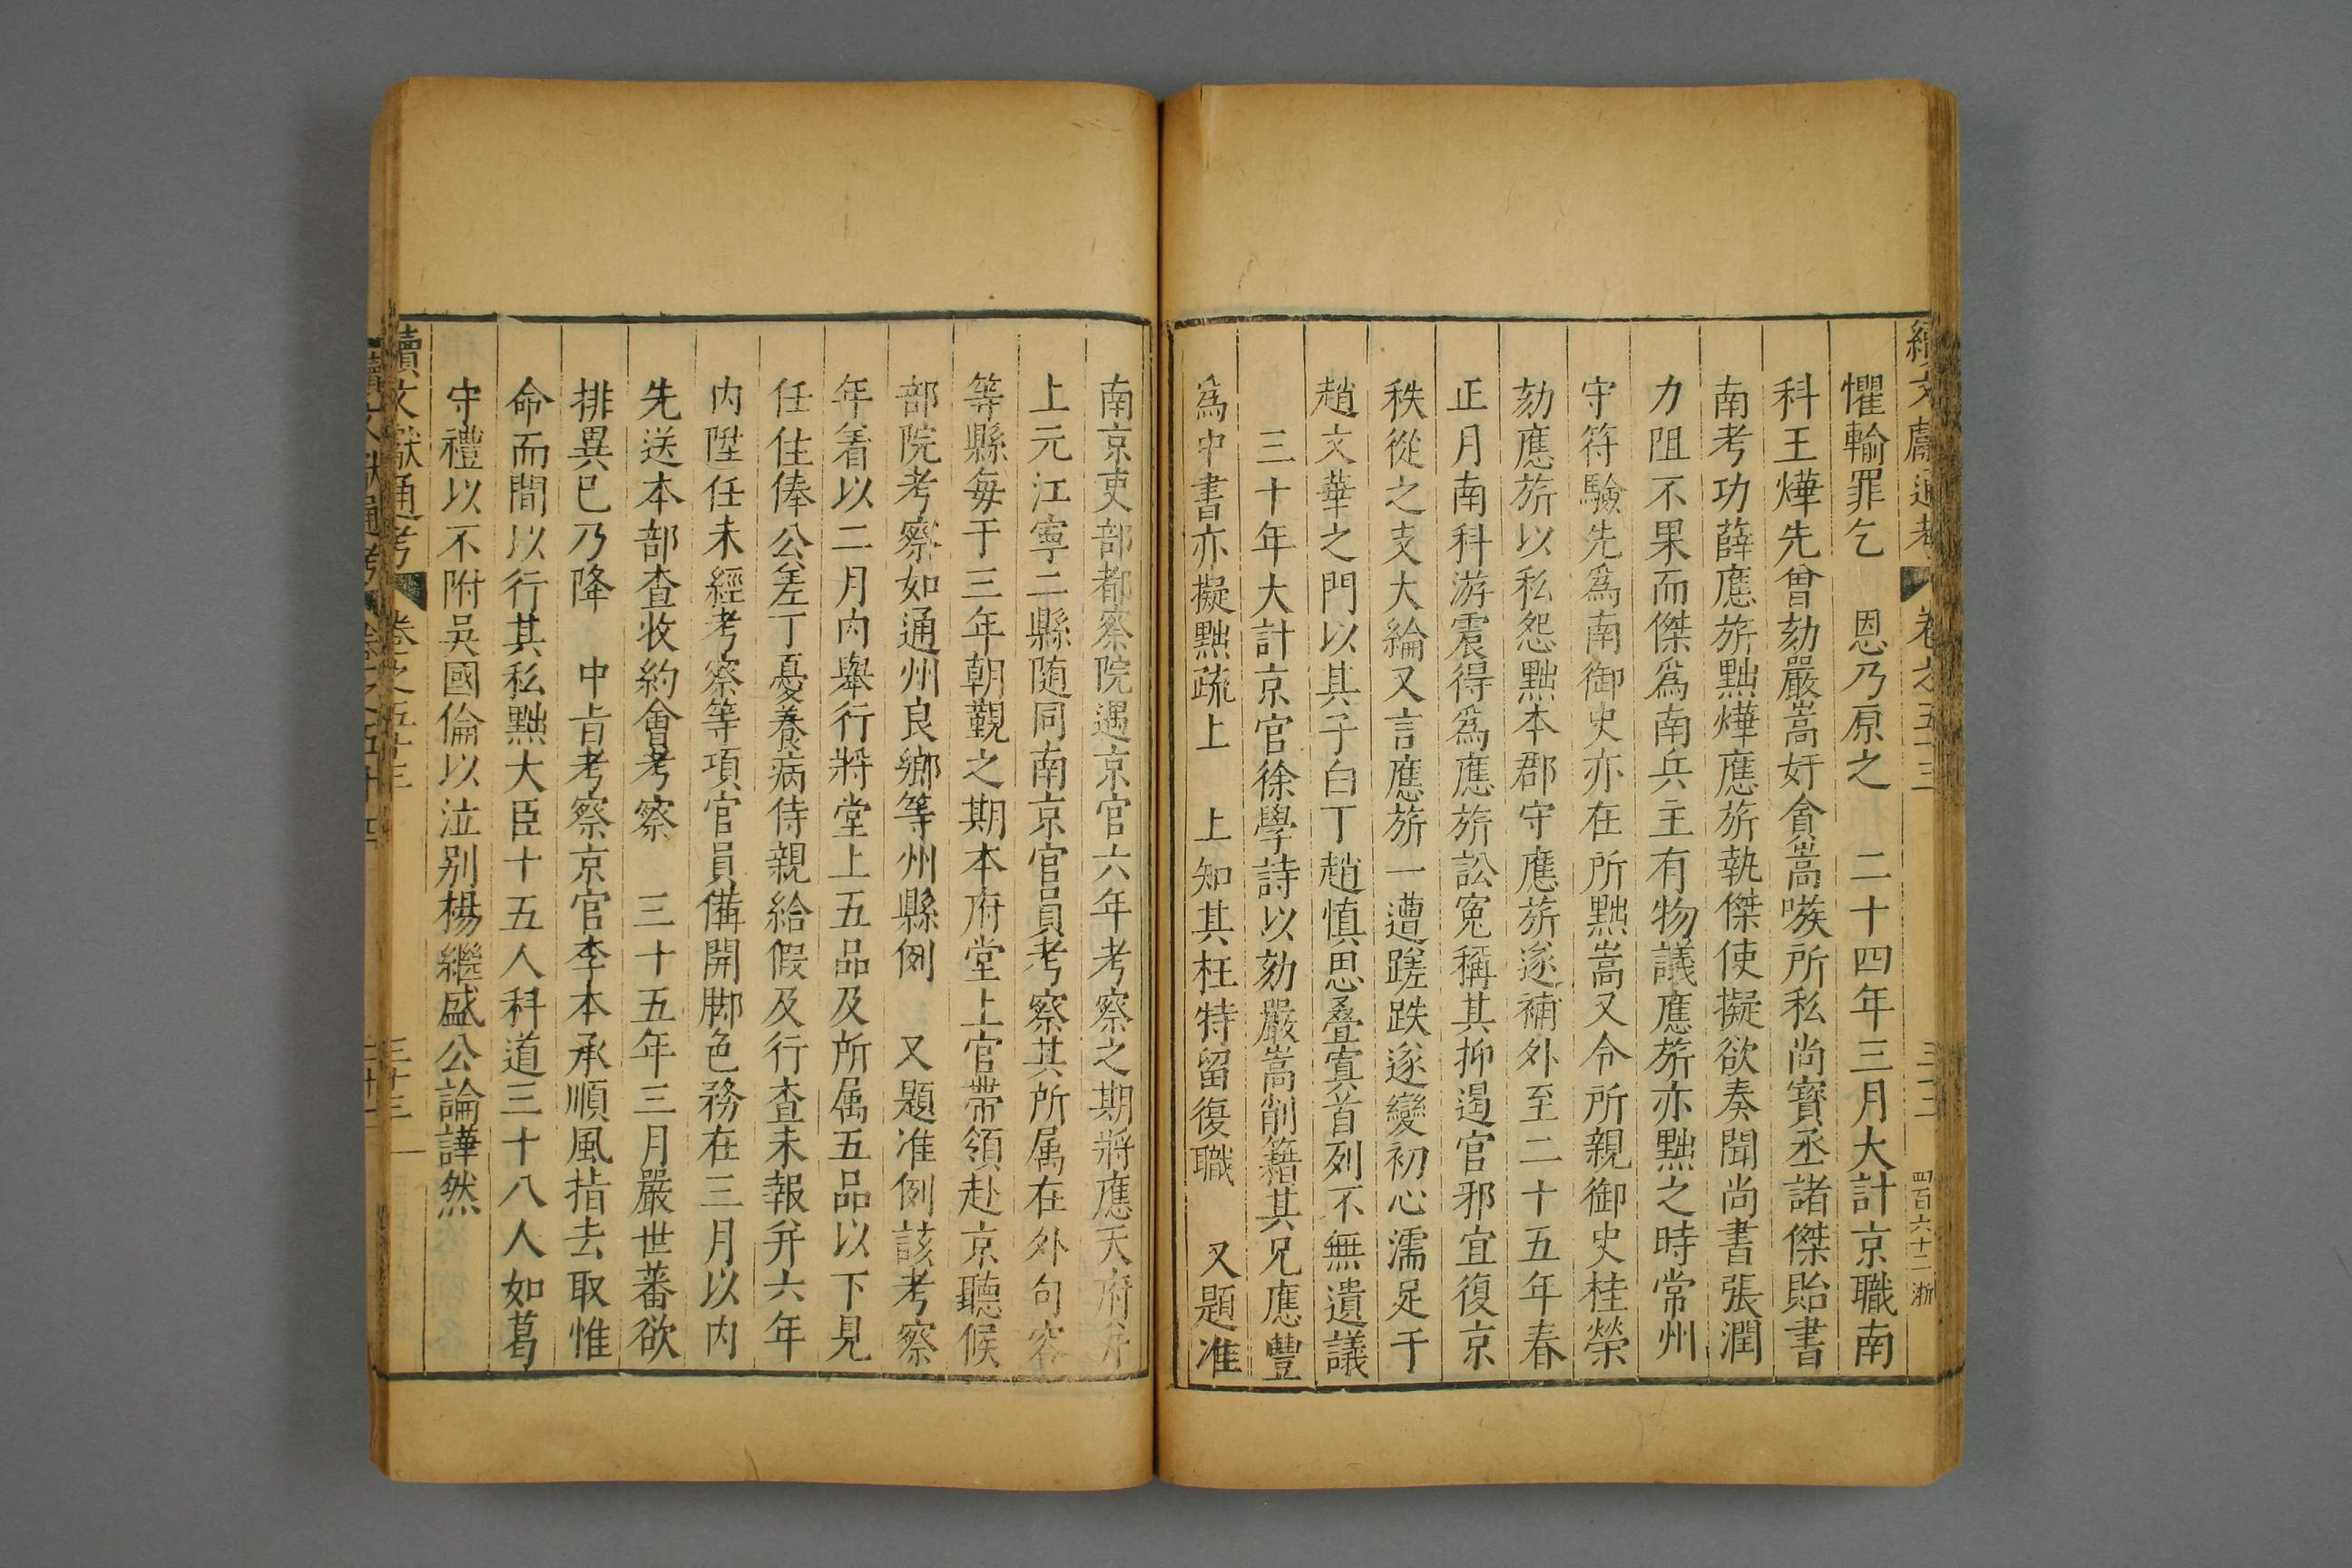 續文獻通考 卷之五十三 三三 四百六十二 浙
懼輸罪乞 恩乃原之 二十四年三月大計京職南
科王燁先曾劾嚴嵩奸貪嵩嗾所私尚寶丞諸傑貽書
南考功薛應旂黜燁應旂執傑使擬欲奏聞尚書張潤
力阻不果而傑爲南兵主有物議應旂亦黜之時常州
守符驗先爲南御史亦在所黜嵩又令所親御史桂榮
劾應旂以私怨黜本郡守應旂遂補外至二十五年春
正月南科游震得爲應旂訟寃稱其抑遏官邪宜復京
秩從之支大綸又言應旂一遭蹉跌遂變初心濡足于
趙文華之門以其子白丁趙慎思叠寘首列不無遺議
三十年大計京官徐學詩以劾嚴嵩削籍其兄應豐
爲中書亦擬黜疏上 上知其枉特留復職 又題准
南京吏部都察院遇京官六年考察之期將應天府并
上元江寧二縣随同南京官員考察其所属在外句容
等縣每于三年朝覲之期本府堂上官帶領赴京聽候
部院考察如通州良鄉等州縣例 又題准例該考察
年着以二月內舉行將堂上五品及所属五品以下見
任住俸公差丁憂養病侍親給假及行查未報并六年
内陞任未經考察等項官員備開脚色務在三月以内
先送本部查收約會考察 三十五年三月嚴世蕃欲
排異己乃降 中旨考察京官李本承順風指去取惟
命而間以行其私黜大臣十五人科道三十八人如葛
守禮以不附吳國倫以泣别楊繼盛公論譁然
續文獻通考 卷之五十三 三十三